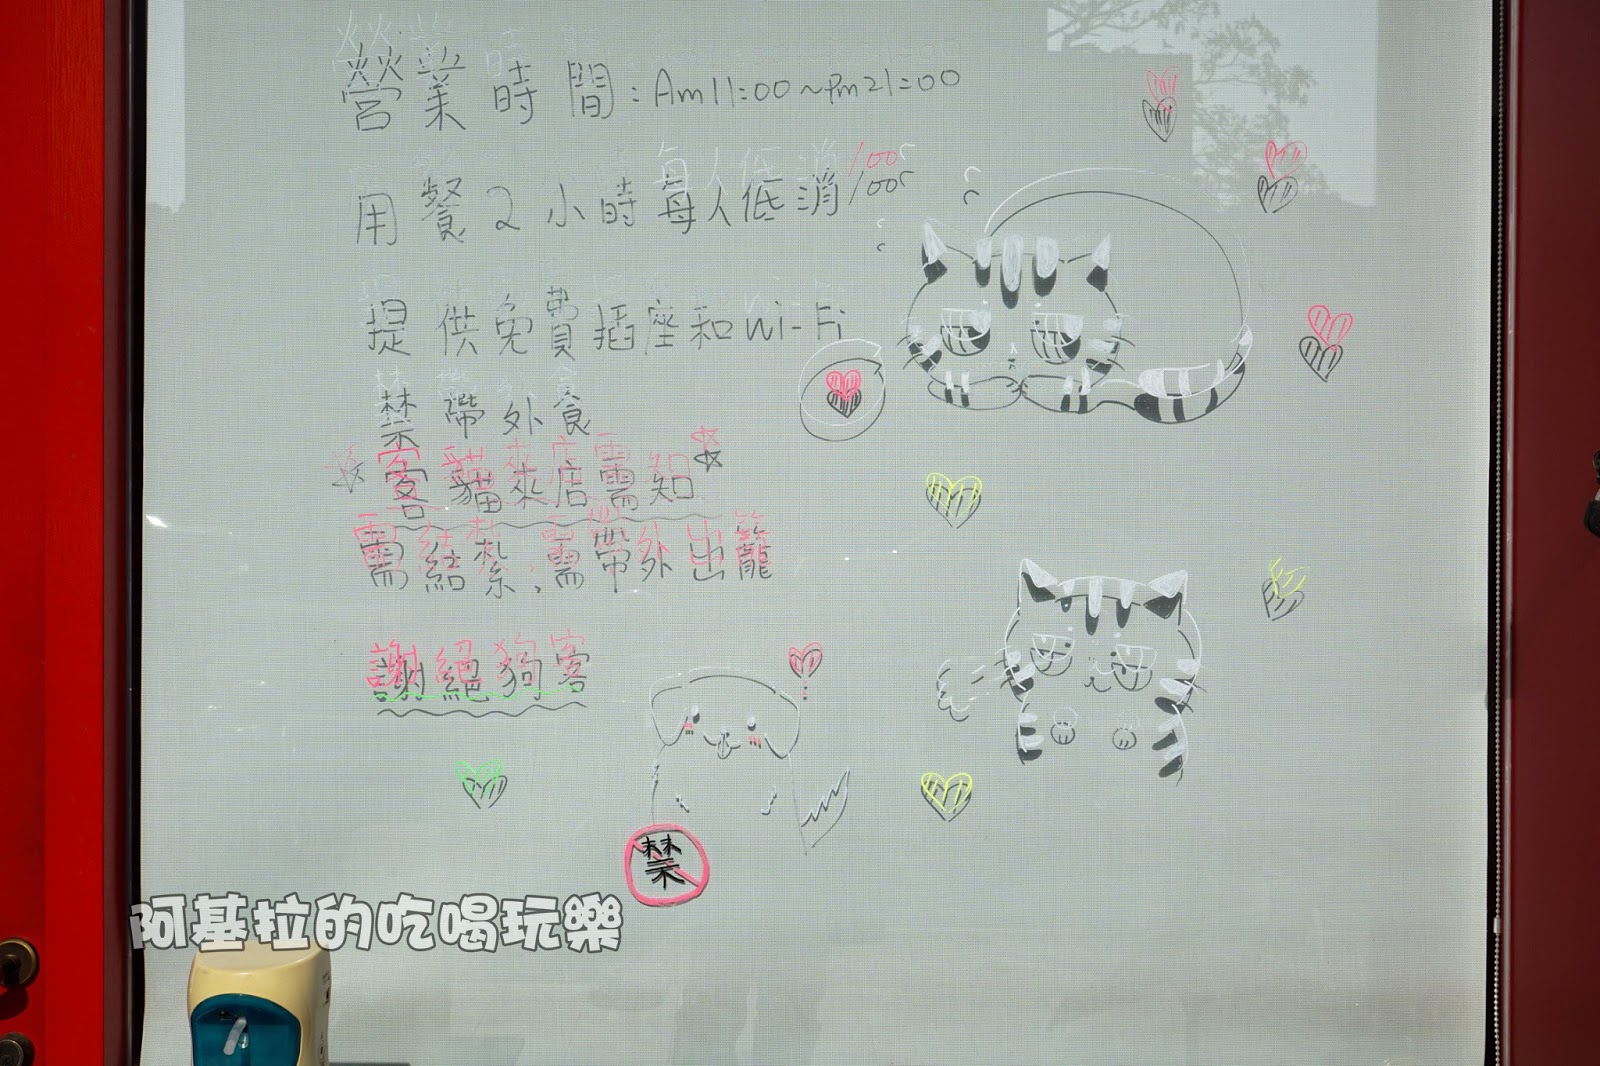 營業時間:Am11:00~Pm21:00
用餐2小時每人低消100元
提供免費插座和Wi-Fi
禁帶外食
客貓來店需知
需結紮,需帶外出籠
謝絕狗客
禁
阿基拉的吃喝玩樂